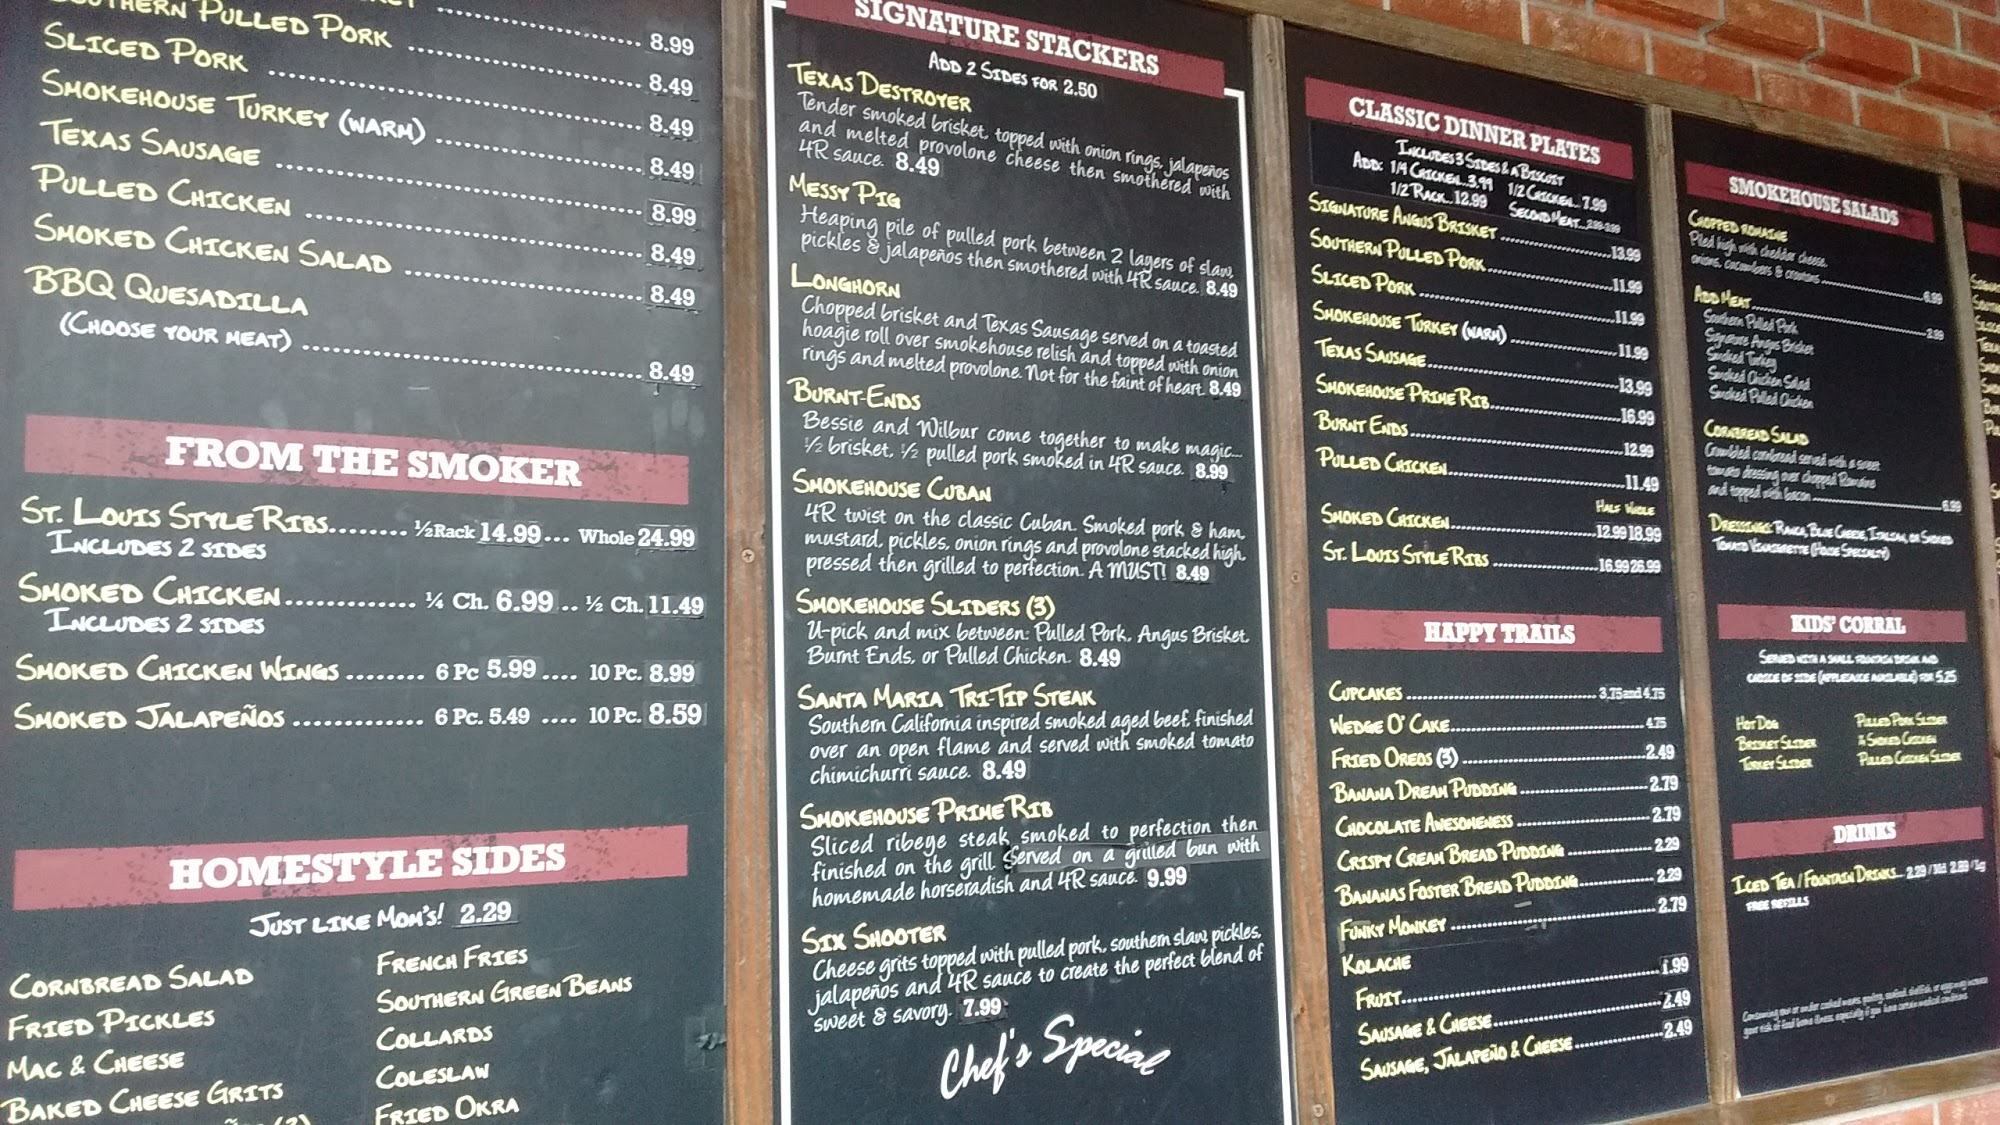 8.99
SOUTHERN PULLED PORK 8.49
SLICED PORK 8.49
SMOKEHOUSE TURKEY (WARM) 8.49
TEXAS SAUSAGE 8.99
PULLED CHICKEN 8.49
SMOKED CHICKEN SALAD 8.49
BBQ QUESADILLA
(CHOOSE YOUR MEAT) 8.49
FROM THE SMOKER
ST. LOUIS STYLE RIBS........ ½Rack 14.99... Whole 24.99
INCLUDES 2 SIDES
SMOKED CHICKEN............. ¼ Ch. 6.99 .. ½ Ch. 11.49
INCLUDES 2 SIDES
SMOKED CHICKEN WINGS ........ 6 Pc 5.99 .... 10 Pc. 8.99
SMOKED JALAPEÑOS ............. 6 Pc. 5.49 .... 10 Pc. 8.59
HOMESTYLE SIDES
JUST LIKE MOM'S! 2.29
CORNBREAD SALAD
FRIED PICKLES
MAC & CHEESE
BAKED CHEESE GRITS
FRENCH FRIES
SOUTHERN GREEN BEANS
COLLARDS
COLESLAW
FRIED OKRA
SIGNATURE STACKERS
ADD 2 SIDES FOR 2.50
TEXAS DESTROYER
Tender smoked brisket, topped with onion rings, jalapeños
and melted provolone cheese then smothered with
4R sauce. 8.49
MESSY PIG
Heaping pile of pulled pork between 2 layers of slaw,
pickles & jalapeños then smothered with 4R sauce. 8.49
LONGHORN
Chopped brisket and Texas Sausage served on a toasted
hoagie roll over smokehouse relish and topped with onion
rings and melted provolone. Not for the faint of heart. 8.49
BURNT-ENDS
Bessie and Wilbur come together to make magic...
½ brisket, ½ pulled pork smoked in 4R sauce. 8.99
SMOKEHOUSE CUBAN
4R twist on the classic Cuban. Smoked pork & ham,
mustard, pickles, onion rings and provolone stacked high,
pressed then grilled to perfection. A MUST! 8.49
SMOKEHOUSE SLIDERS (3)
U-pick and mix between: Pulled Pork, Angus Brisket,
Burnt Ends, or Pulled Chicken. 8.49
SANTA MARIA TRI-TIP STEAK
Southern California inspired smoked aged beef, finished
over an open flame and served with smoked tomato
chimichurri sauce. 8.49
SMOKEHOUSE PRIME RIB
Sliced ribeye steak smoked to perfection then
finished on the grill. Served on a grilled bun with
homemade horseradish and 4R sauce. 9.99
SIX SHOOTER
Cheese grits topped with pulled pork, southern slaw, pickles,
jalapeños and 4R sauce to create the perfect blend of
sweet & savory. 7.99
Chef's Special
CLASSIC DINNER PLATES
INCLUDES 3 SIDES & A BISCUIT
ADD: 1/4 CHICKEN...3.99 1/2 CHICKEN...7.99
1/2 RACK...12.99 SECOND MEAT...2.99-3.99
SIGNATURE ANGUS BRISKET 13.99
SOUTHERN PULLED PORK 11.99
SLICED PORK 11.99
SMOKEHOUSE TURKEY (WARM) 11.99
TEXAS SAUSAGE 13.99
SMOKEHOUSE PRIME RIB 16.99
BURNT ENDS 12.99
PULLED CHICKEN 11.49
HALF WHOLE
SMOKED CHICKEN 12.99 18.99
ST. LOUIS STYLE RIBS 16.99 26.99
HAPPY TRAILS
CUPCAKES 3.75 and 4.75
WEDGE O' CAKE 4.75
FRIED OREOS (3) 2.49
BANANA DREAM PUDDING 2.79
CHOCOLATE AWESOMENESS 2.79
CRISPY CREAM BREAD PUDDING 2.29
BANANAS FOSTER BREAD PUDDING 2.29
FUNKY MONKEY 2.79
KOLACHE
FRUIT 1.99
SAUSAGE & CHEESE 2.49
SAUSAGE, JALAPEÑO & CHEESE 2.49
SMOKEHOUSE SALADS
CHOPPED ROMAINE
Piled high with cheddar cheese,
onions, cucumbers & croutons 6.99
ADD MEAT 2.99
Southern Pulled Pork
Signature Angus Brisket
Smoked Turkey
Smoked Chicken Salad
Smoked Pulled Chicken
CORNBREAD SALAD
Crumbled cornbread served with a sweet
tomato dressing over chopped Romaine
and topped with bacon 6.99
DRESSINGS: RANCH, BLUE CHEESE, ITALIAN, OR SMOKED
TOMATO VINAIGRETTE (HOUSE SPECIALTY)
KIDS' CORRAL
SERVED WITH A SMALL FOUNTAIN DRINK AND
CHOICE OF SIDE (APPLESAUCE AVAILABLE) FOR 5.25
HOT DOG
BRISKET SLIDER
TURKEY SLIDER
PULLED PORK SLIDER
SMOKED CHICKEN
PULLED CHICKEN SLIDER
DRINKS
ICED TEA / FOUNTAIN DRINKS... 2.29 / 2.89 / lg
FREE REFILLS